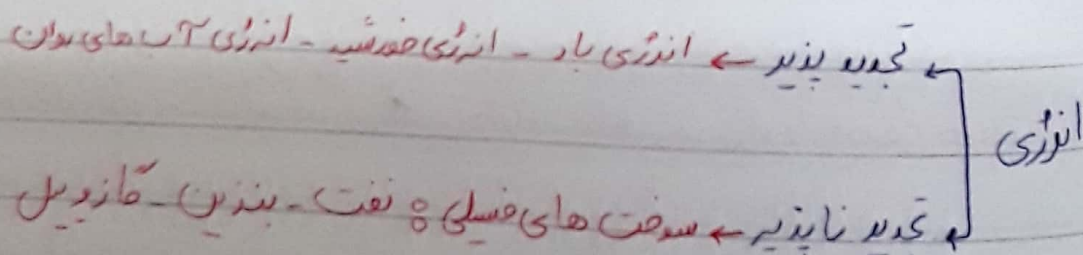 انرژی
تجدید پذیر ← انرژی باد - انرژی خورشید - انرژی آب های روان
تجدید ناپذیر ← سوخت های فسیلی : نفت - بنزین - گازوئیل